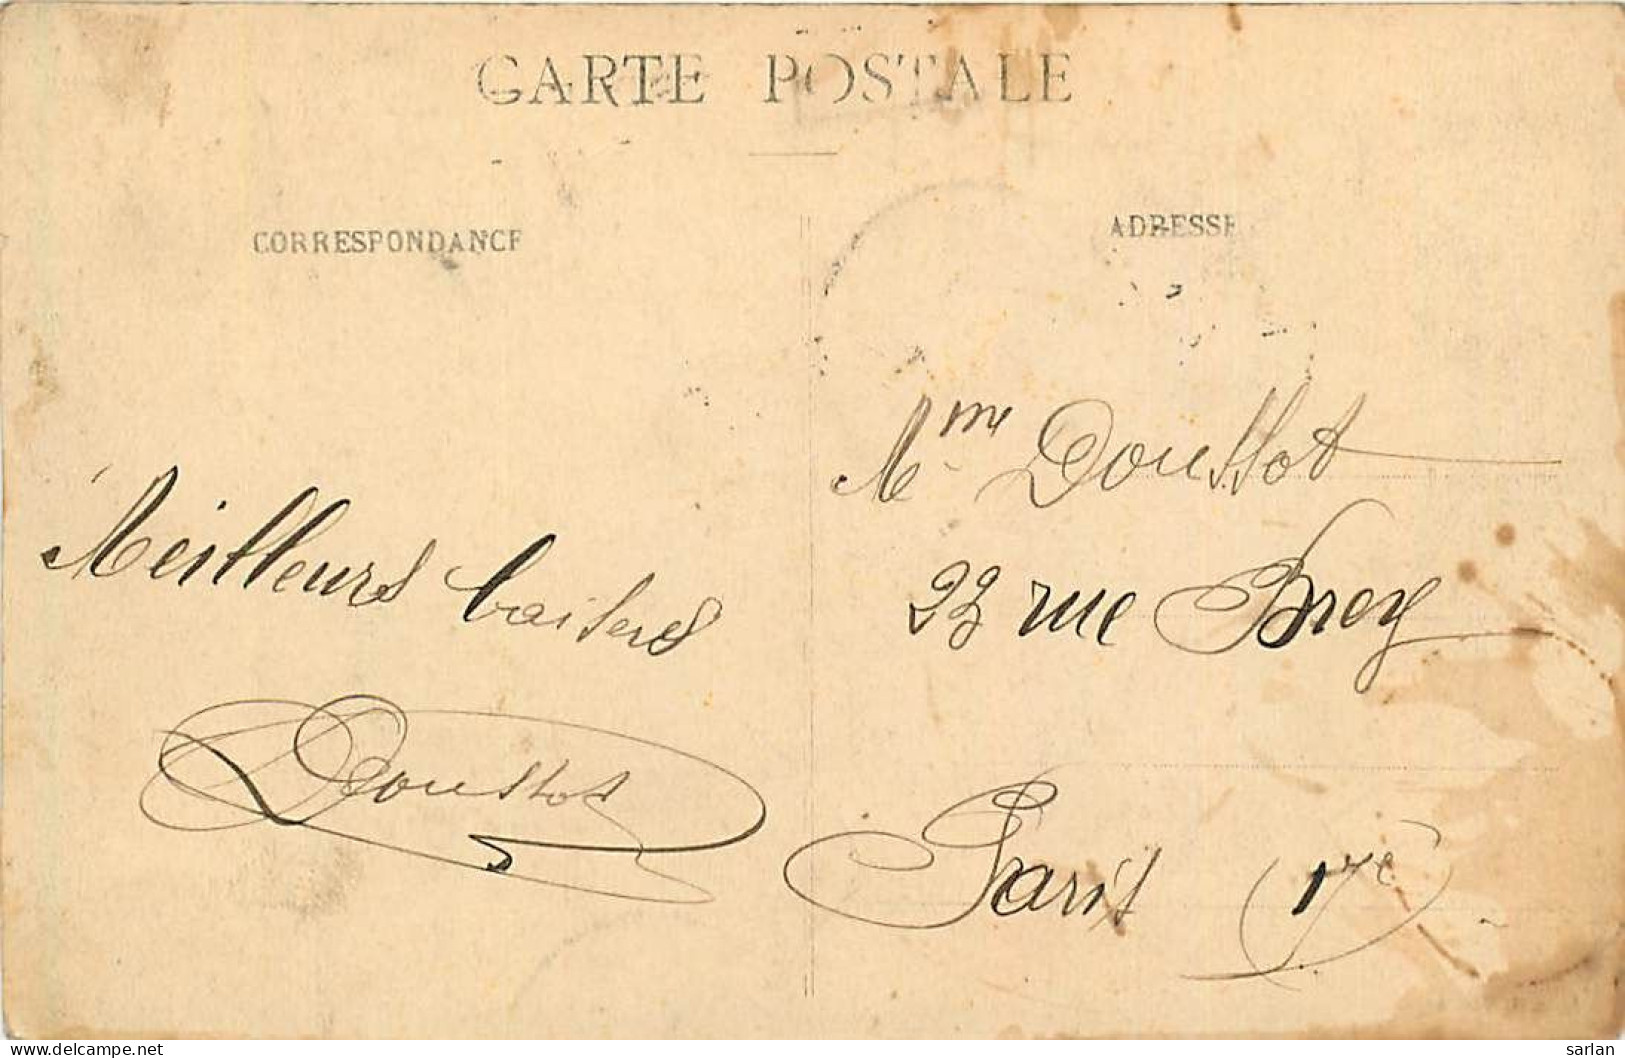 CARTE POSTALE
CORRESPONDANCE
ADRESSE
Meilleurs baisers
Doussot
Mme Doussot
23 rue Brey
Paris 17e
© delcampe.net
sarlan